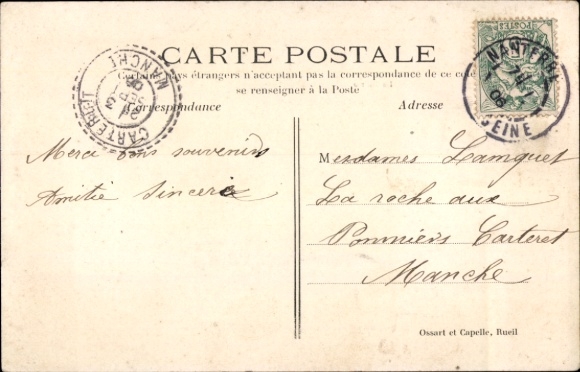 CARTE POSTALE
Certains pays étrangers n'acceptant pas la correspondance de ce coté
se renseigner à la Poste
Correspondance
Adresse
NANTERRE
06
SEINE
CARTERET
MANCHE
POSTES
Merci bons souvenirs
Amitié Sincère
Mesdames Lamquet
La roche aux
Pommiers Carteret
Manche
Ossart et Capelle, Rueil